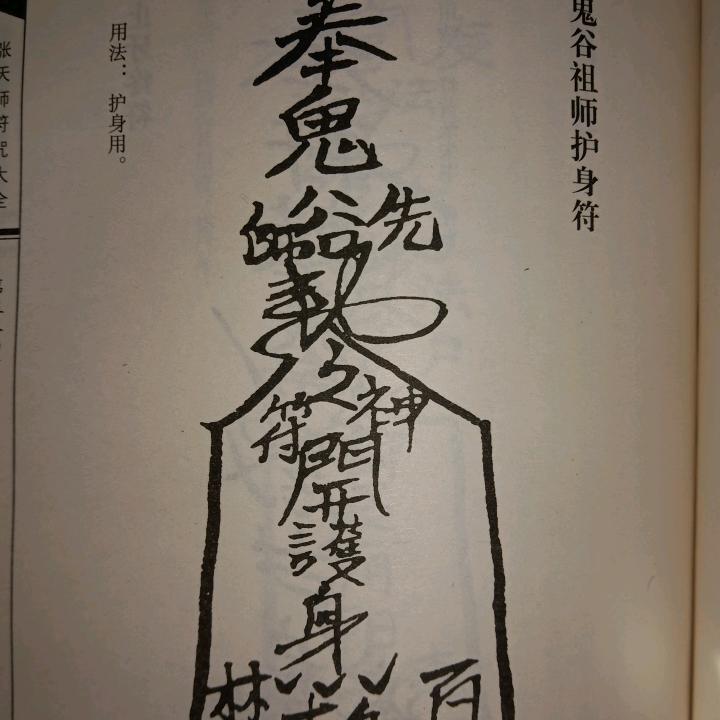 鬼谷祖师护身符
奉
鬼
谷
先
师
令
神
符
開
護
身
林
百
用法：护身用。
张天师符咒大全